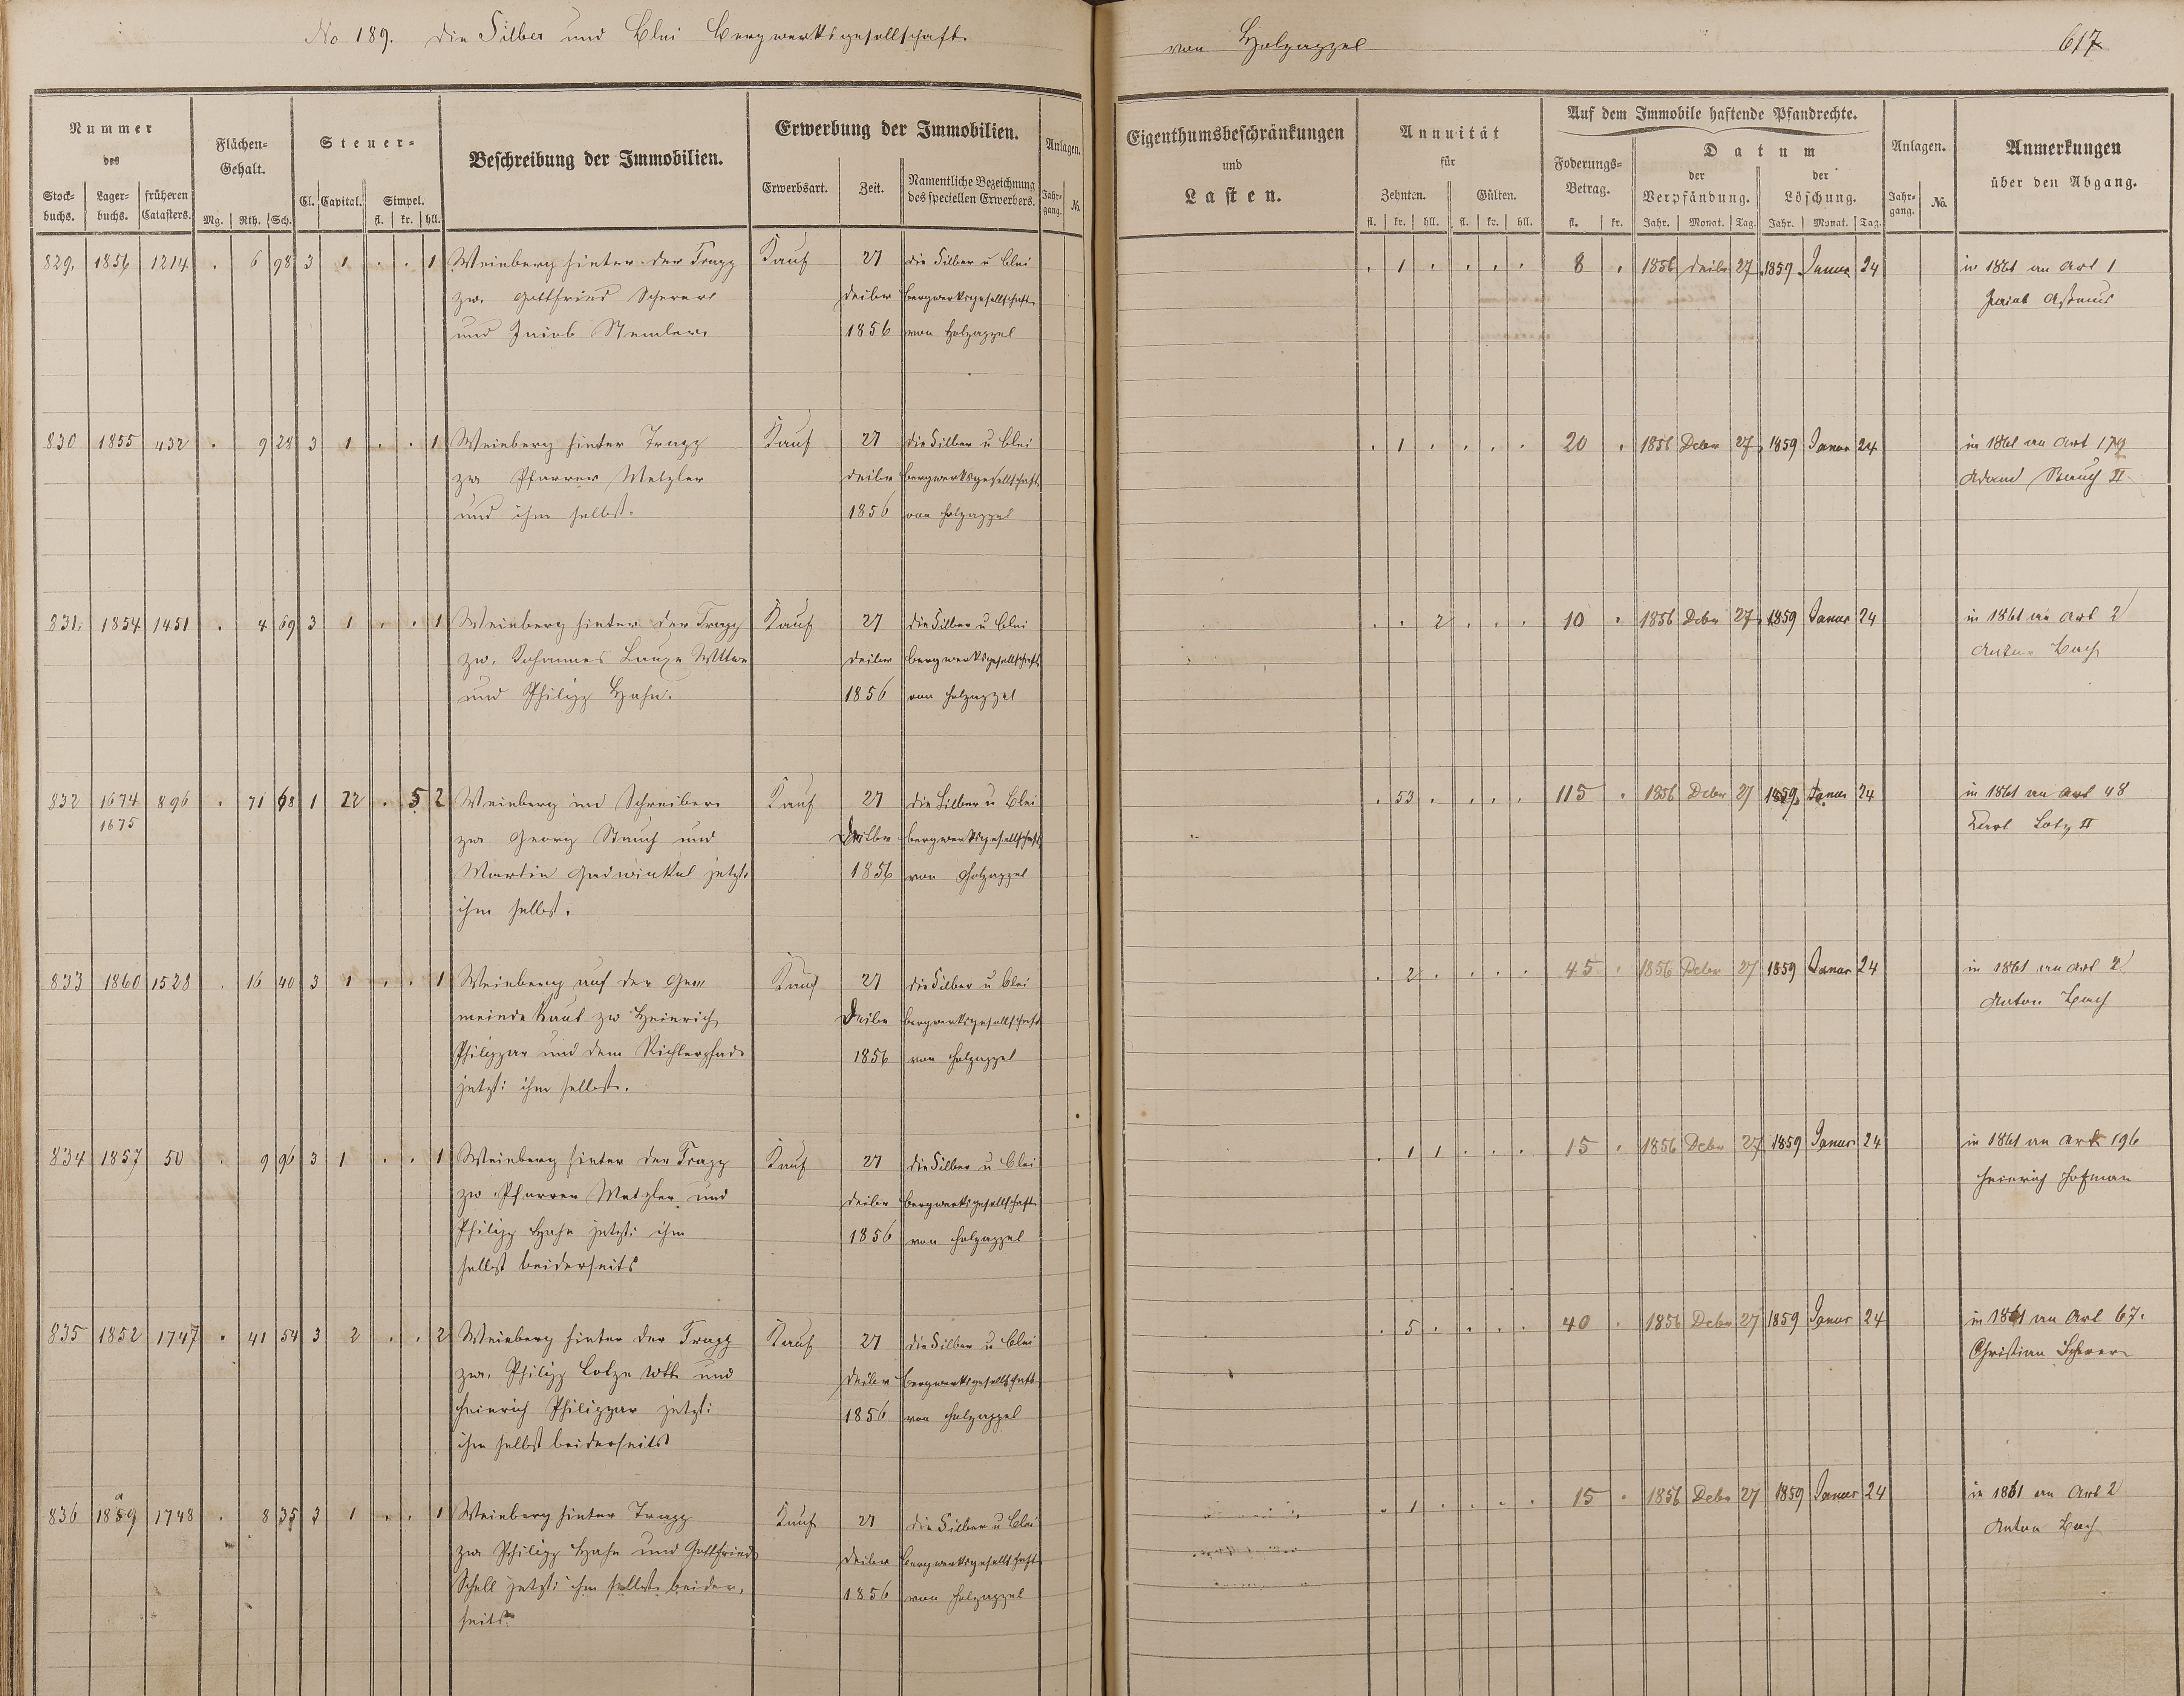 No 189. die Silber und Blei Bergwerksgesellschaft.
von Holzappel
617
Nummer
des
Stock-
buchs.
Lager-
buchs.
früheren
Catasters.
Flächen-
Gehalt.
Mg. Rth. Sch.
Steuer-
Cl. Capital. Simpel.
fl. kr. hll.
Beschreibung der Immobilien.
Erwerbung der Immobilien.
Erwerbsart. Zeit. Namentliche Bezeichnung
des speciellen Erwerbers.
Anlagen.
Jahr-
gang. No.
Eigenthumsbeschränkungen
und
Lasten.
Annuität
für
Zehnten. Gülten.
fl. kr. hll. fl. kr. hll.
Auf dem Immobile haftende Pfandrechte.
Foderungs-
Betrag.
fl. kr.
Datum
der
Verpfändung.
der
Löschung.
Jahr. Monat. Tag. Jahr. Monat. Tag.
Anlagen.
Jahr-
gang. No.
Anmerkungen
über den Abgang.
829. 1856 1214 . 6 98 3 1 . . 1 Weinberg hinter der Trapp Kauf 27 die Silber u Blei . 1 . . . . 8 . 1856 27 1859 Januar 24 in 1861 an Art 1
zw. Gottfried Scherer Bergwerksgesellschaft Jacob
und Jacob 1856 von Holzappel
830 1855 432 . 9 28 3 1 . . 1 Weinberg hinter Trapp Kauf 27 die Silber u Blei . 1 . . . . 20 . 1856 Dcbr 27 1859 Januar 24 in 1861 an Art
zw Pfarrer Metzler Bergwerksgesellschaft Adam Stauch II
und ihm selbst. 1856 von Holzappel
831. 1854 1451 . 4 69 3 1 . . 1 Weinberg hinter der Trapp Kauf 27 die Silber u Blei . . 2 . . . 10 . 1856 Dcbr 27 1859 Januar 24 in 1861 an Art 2
zw. Johannes Wittwe Bergwerksgesellschaft Anton Bach
und Philipp Hahn. 1856 von Holzappel
832 1674 896 . 71 68 1 22 . 5 2 Weinberg im Schreiber Kauf 27 die Silber u Blei . 53 . . . . 115 . 1856 Dcbr 27 1859 Januar 24 in 1861 an Art 48
1675
zw Georg Stauch und Bergwerksgesellschaft Karl Lotz II
Martin Gadwinkel jetzt 1856 von Holzappel
ihm selbst.
833 1860 1528 . 16 40 3 1 . . 1 Weinberg auf der Ge- Kauf 27 die Silber u Blei . 2 . . . . 45 . 1856 Dcbr 27 1859 Januar 24 in 1861 an Art 2
meinde Kaut zw Heinrich Bergwerksgesellschaft Anton Bach
Philippar und dem 1856 von Holzappel
jetzt: ihm selbst.
834 1857 50 . 9 96 3 1 . . 1 Weinberg hinter der Trapp Kauf 27 die Silber u Blei . 1 1 . . . 15 . 1856 Dcbr 27 1859 Januar 24 in 1861 an Art 196
zw. Pfarrer Metzler und Bergwerksgesellschaft Heinrich Hofman
Philipp Hahn jetzt: ihm 1856 von Holzappel
selbst beiderseits
835 1852 1747 . 41 54 3 2 . . 2 Weinberg hinter der Trapp Kauf 27 die Silber u Blei . 5 . . . . 40 . 1856 Dcbr 27 1859 Januar 24 in 1861 an Art 67.
zw. Philipp Lotze Wtb und Bergwerksgesellschaft Christian Scherer
Heinrich Philippar jetzt: 1856 von Holzappel
ihm selbst beiderseits
836 1859 1748 . 8 35 3 1 . . 1 Weinberg hinter Trapp Kauf 27 die Silber u Blei . 1 . . . . 15 . 1856 Dcbr 27 1859 Januar 24 in 1861 an Art 2
zw Philipp Hahn und Gottfried Bergwerksgesellschaft Anton Bach
Schell jetzt: ihm selbst beider- 1856 von Holzappel
seits